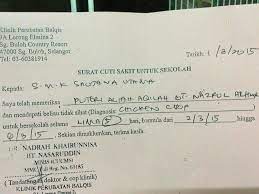 Klinik Perubatan Balqis
Sg. Buloh Country Resort
47000 Sg. Buloh, Selangor
Tel: 03-60381914
Tarikh: 1/3/2015
SURAT CUTI SAKIT UNTUK SEKOLAH
Kepada : S.M.K SAUJANA UTAMA
Saya telah memeriksa PUTERI ALIAH AQILAH BT. NAZRUL
dan mendapati beliau tidak sihat (Diagnosis: CHICKEN
untuk bersekolah selama LIMA (5) hari, bermula dari 2/3/15 hingga
6/3/15. Sekian dimaklumkan, terima kasih.
DR. NADIRAH KHAIRUNNISA
BT. NASARUDDIN
(Tandatangan doktor & cop klinik)
KLINIK PERUBATAN BALQIS